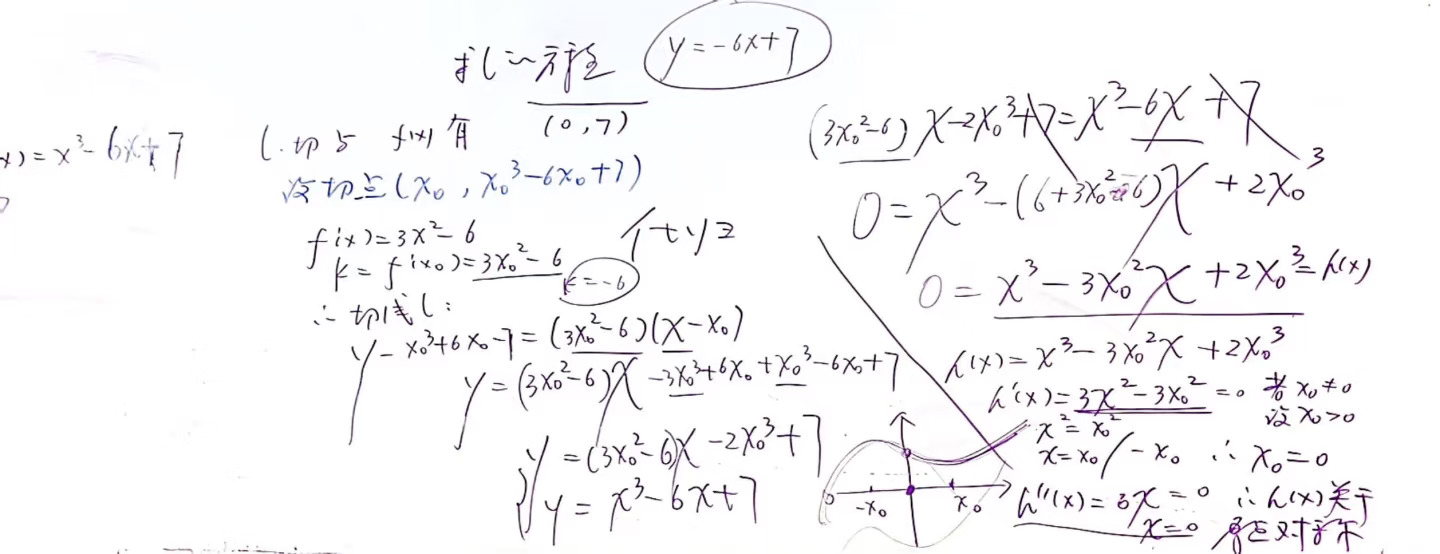 求l的方程 y=-6x+7
(0,7)
x)=x³-6x+7
l切与 f(x)有
设切点(x₀, x₀³-6x₀+7)
f'(x)=3x²-6
k=f'(x₀)=3x₀²-6
k=-6
∴切线l:
y-x₀³+6x₀-7=(3x₀²-6)(x-x₀)
y=(3x₀²-6)x-3x₀³+6x₀+x₀³-6x₀+7
y=(3x₀²-6)x-2x₀³+7
y=x³-6x+7
(3x₀²-6)x-2x₀³+7=x³-6x+7
0=x³-(6+3x₀²-6)x+2x₀³
0=x³-3x₀²x+2x₀³=h(x)
h(x)=x³-3x₀²x+2x₀³
h'(x)=3x²-3x₀²=0 若x₀≠0
设x₀>0
x²=x₀²
x=x₀/-x₀ ∴x₀=0
-x₀ x₀
h''(x)=6x=0 ∴h(x)关于
x=0 对称